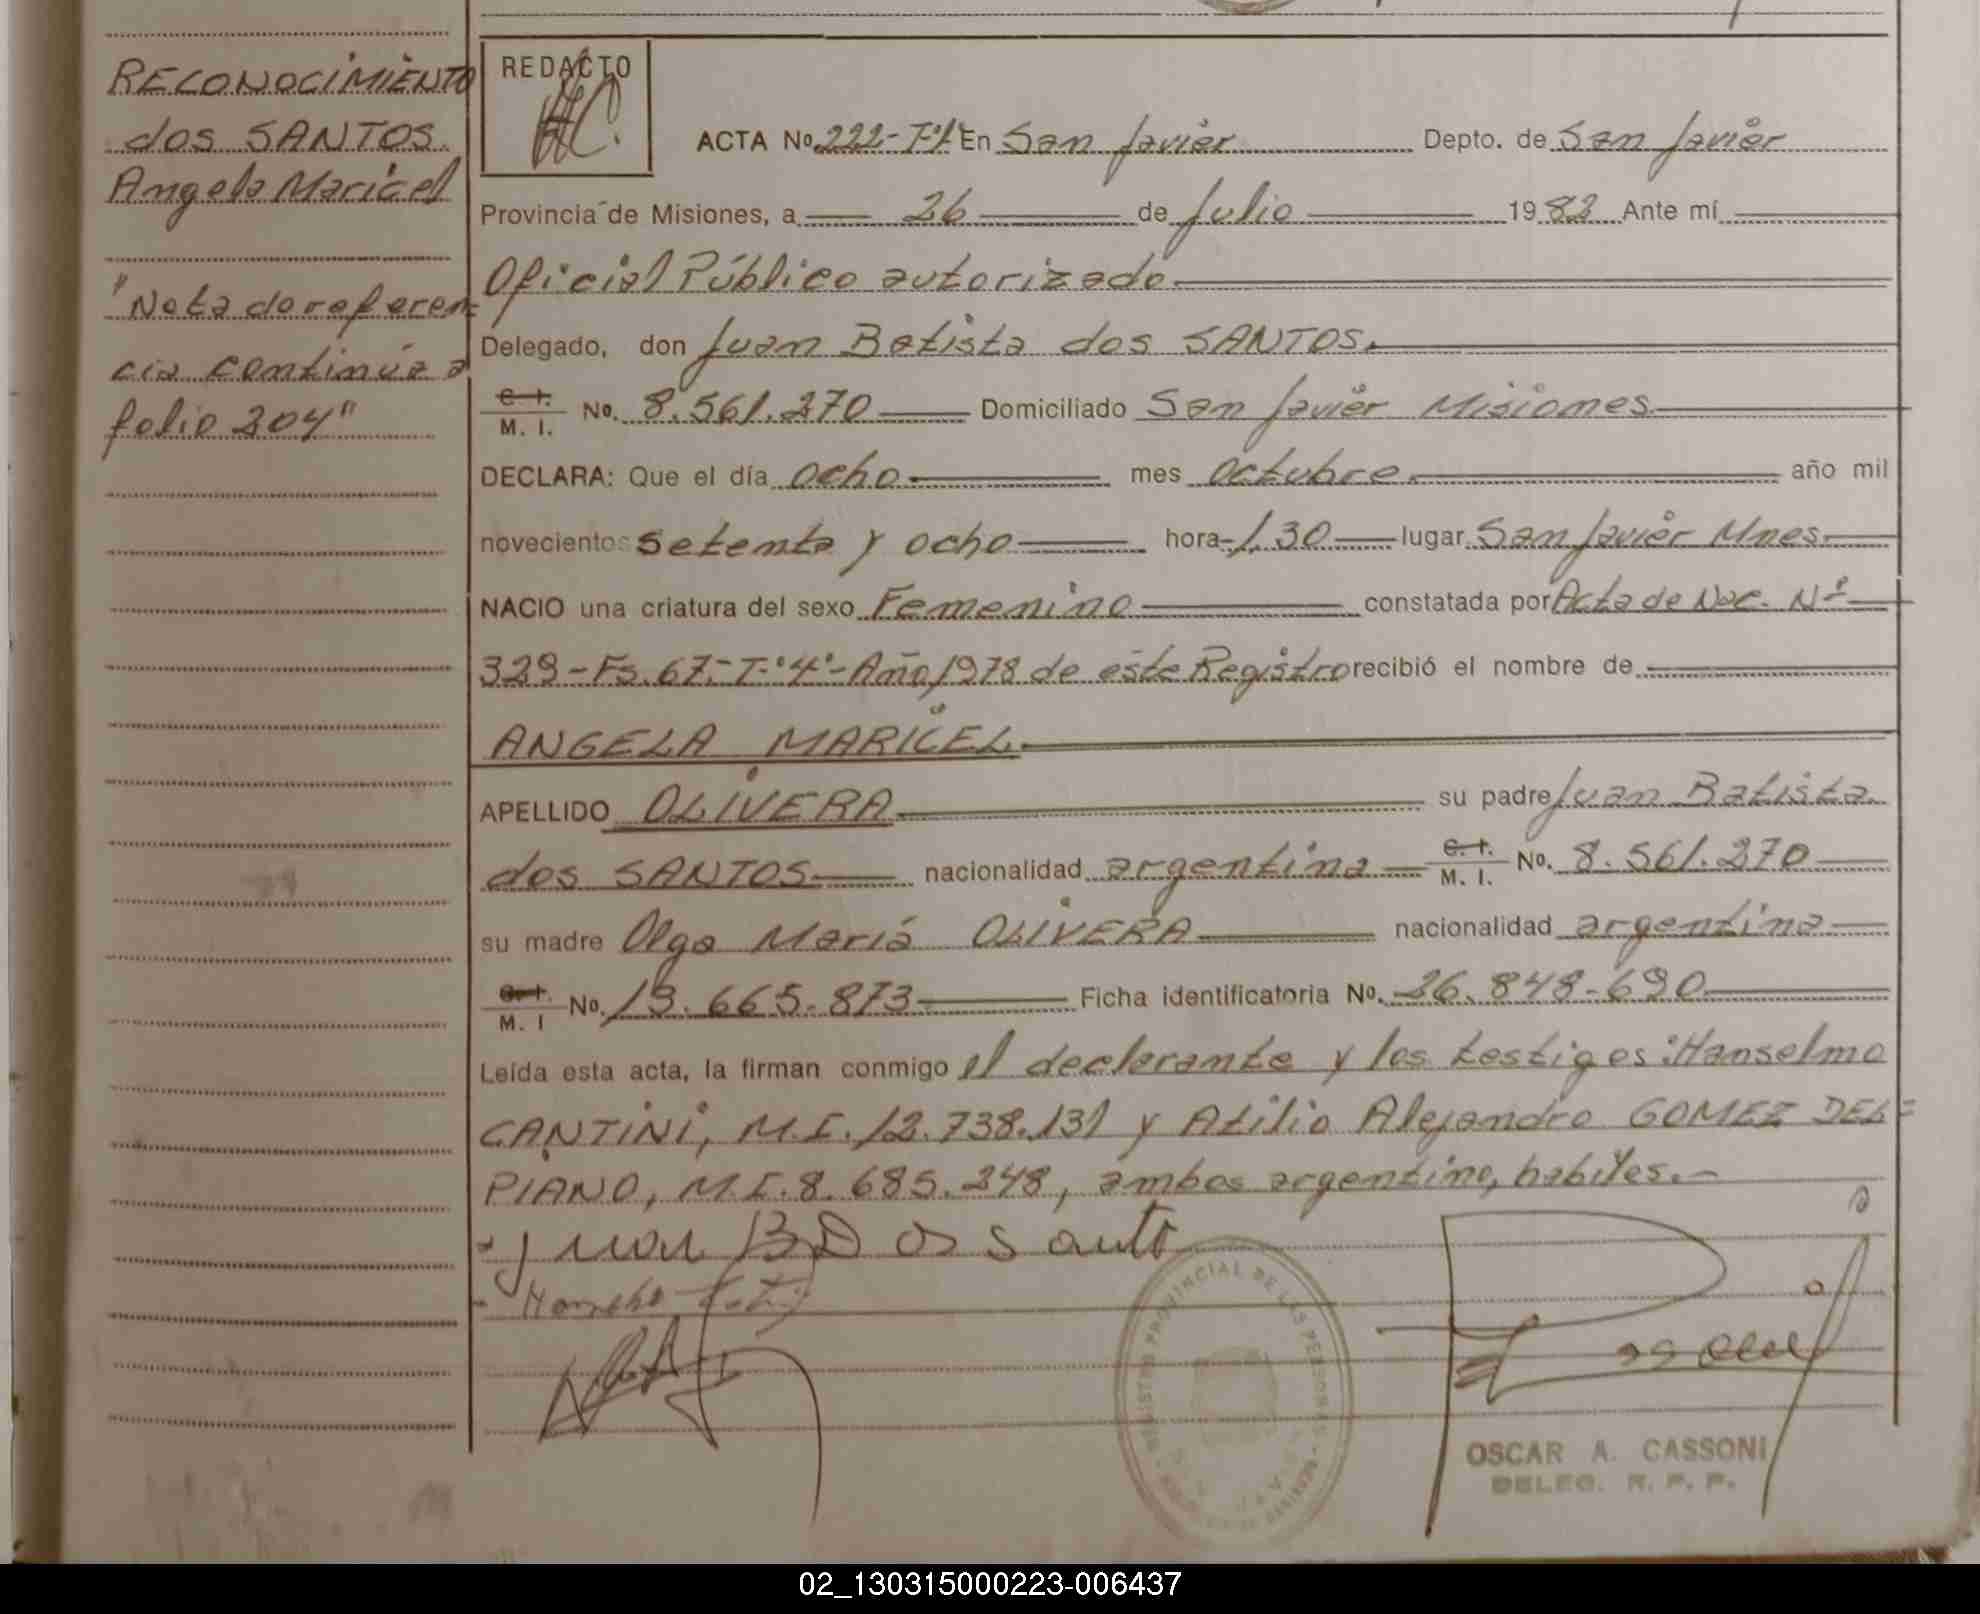 RECONOCIMIENTO
dos SANTOS.
Angela Maricel
"Nota de referen=
cia continúa a
folio 204"
REDACTO
ACTA No. 222-Tº1º En San Javier Depto. de San Javier
Provincia de Misiones, a 26 de Julio 1983 Ante mí
Oficial Público autorizado
Delegado, don Juan Batista dos SANTOS.
C. I. / M. I. No. 8.561.270 Domiciliado San Javier Misiones
DECLARA: Que el día ocho mes octubre año mil
novecientos setenta y ocho hora 1.30 lugar San Javier Mnes.
NACIO una criatura del sexo Femenino constatada por Acta de Nac. Nº
329-Fs.67.-T.º4º-Año 1978 de este Registro recibió el nombre de
ANGELA MARICEL
APELLIDO OLIVERA su padre Juan Batista
dos SANTOS nacionalidad argentina C. I. / M. I. No. 8.561.270
su madre Olga María OLIVERA nacionalidad argentina
C. I. / M. I No. 13.665.873 Ficha identificatoria No. 26.848.690
Leída esta acta, la firman conmigo el declarante y los testigos: Hanselmo
CANTINI, M.I. 12.738.131 y Atilio Alejandro GOMEZ DEL=
PIANO, M.I. 8.685.248, ambos argentino, habiles.-
Juan B Dos Santo
REGISTRO PROVINCIAL DE LAS PERSONAS
OSCAR A. CASSONI
DELEG. R. P. P.
02_130315000223-006437